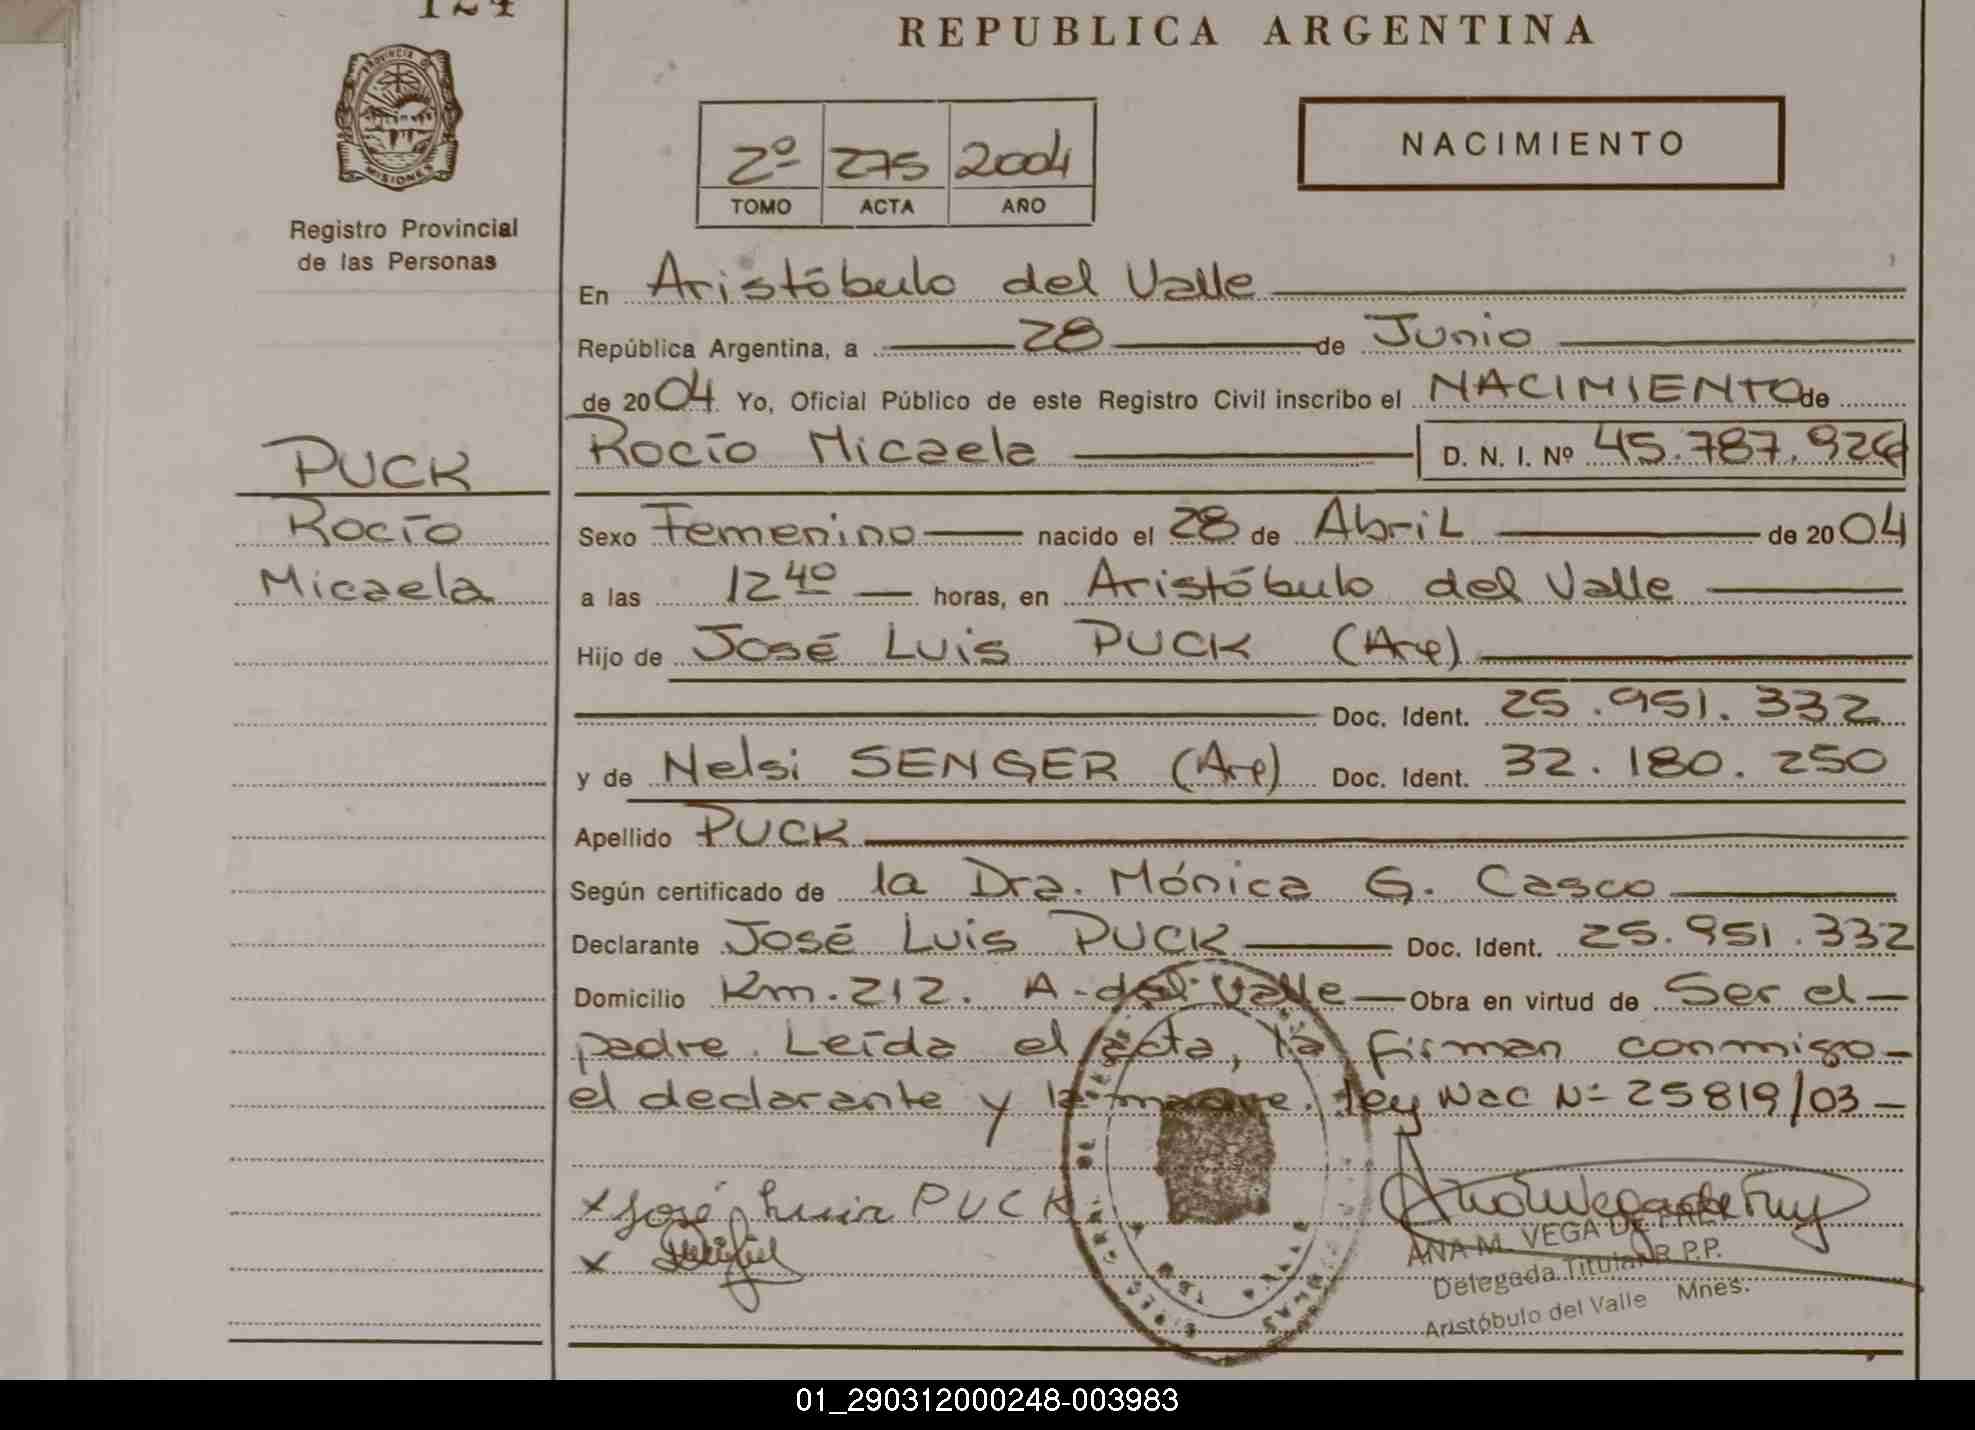 124
REPUBLICA ARGENTINA
PROVINCIA D
MISIONES
Registro Provincial
de las Personas
2º 275 2004
TOMO ACTA AÑO
NACIMIENTO
En Aristóbulo del Valle
República Argentina, a 28 de Junio
de 2004 Yo, Oficial Público de este Registro Civil inscribo el NACIMIENTO de
Rocío Micaela D. N. I. Nº 45.787.926
PUCK
Rocío
Micaela
Sexo Femenino nacido el 28 de Abril de 2004
a las 12 40 horas, en Aristóbulo del Valle
Hijo de José Luis PUCK (Arg)
Doc. Ident. 25.951.332
y de Nelsi SENGER (Arg) Doc. Ident. 32.180.250
Apellido PUCK
Según certificado de la Dra. Mónica G. Casco
Declarante José Luis PUCK Doc. Ident. 25.951.332
Domicilio Km. 212. A. del Valle Obra en virtud de Ser el
padre. Leída el acta, la firman conmigo
el declarante y la madre. ley Nac Nº 25819/03
x José Luis PUCK
x
ANA M. VEGA DE
Delegada Titular R.P.P.
Aristóbulo del Valle Mnes.
01_290312000248-003983